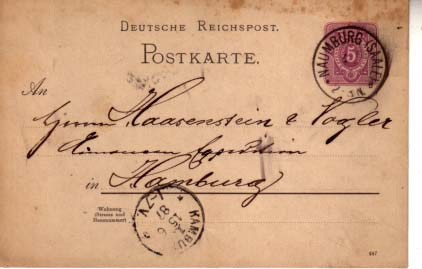 DEUTSCHE REICHSPOST.
POSTKARTE.
5
NAUMBURG (SAALE)
An
Herrn Haasenstein & Vogler
Annoncen Expedition
in Hamburg
Wohnung
(Strasse und
Hausnummer)
HAMBURG
87